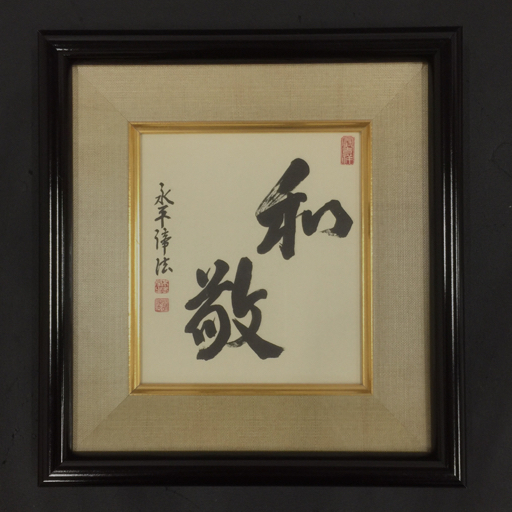 和敬
永平諦法